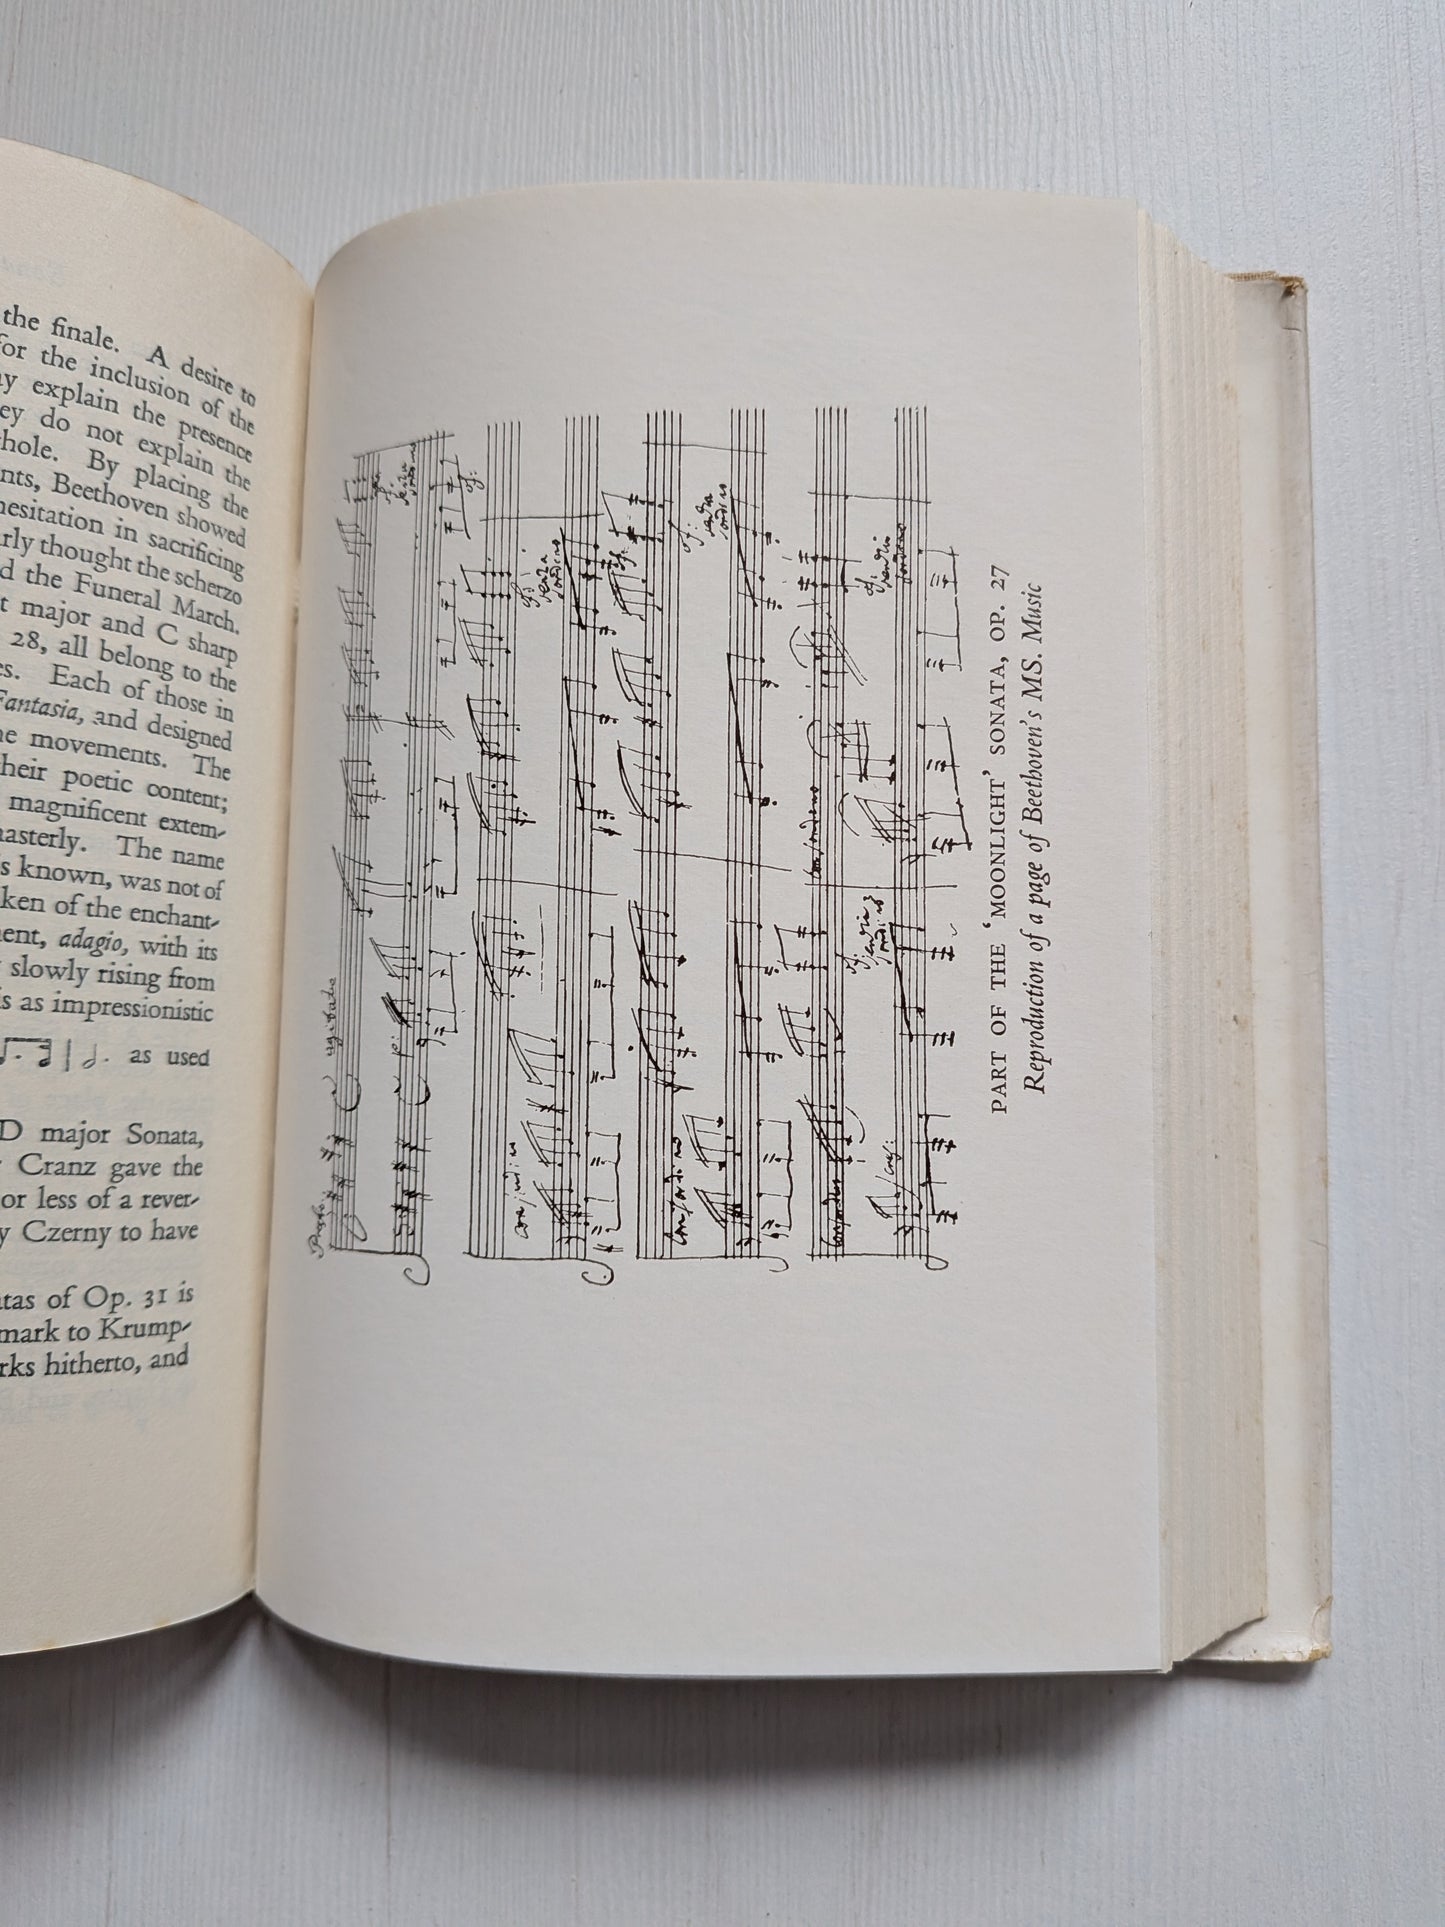 the finale. A desire to
for the inclusion of the
ay explain the presence
ey do not explain the
hole. By placing the
nts, Beethoven showed
hesitation in sacrificing
arly thought the scherzo
d the Funeral March.
t major and C sharp
28, all belong to the
es. Each of those in
Fantasia, and designed
ne movements. The
heir poetic content;
magnificent extem-
nasterly. The name
is known, was not of
ken of the enchant-
nent, adagio, with its
slowly rising from
is as impressionistic
as used
D major Sonata,
Cranz gave the
or less of a rever-
y Czerny to have
atas of Op. 31 is
mark to Krump-
rks hitherto, and
Presto agitato
p:
senza
sordino
con sordino
senza
sordino
con sordino
senza
sordino
con sordino
senza
sordino
con sordino
senza
sordino
cresc:
PART OF THE 'MOONLIGHT' SONATA, OP. 27
Reproduction of a page of Beethoven's MS. Music